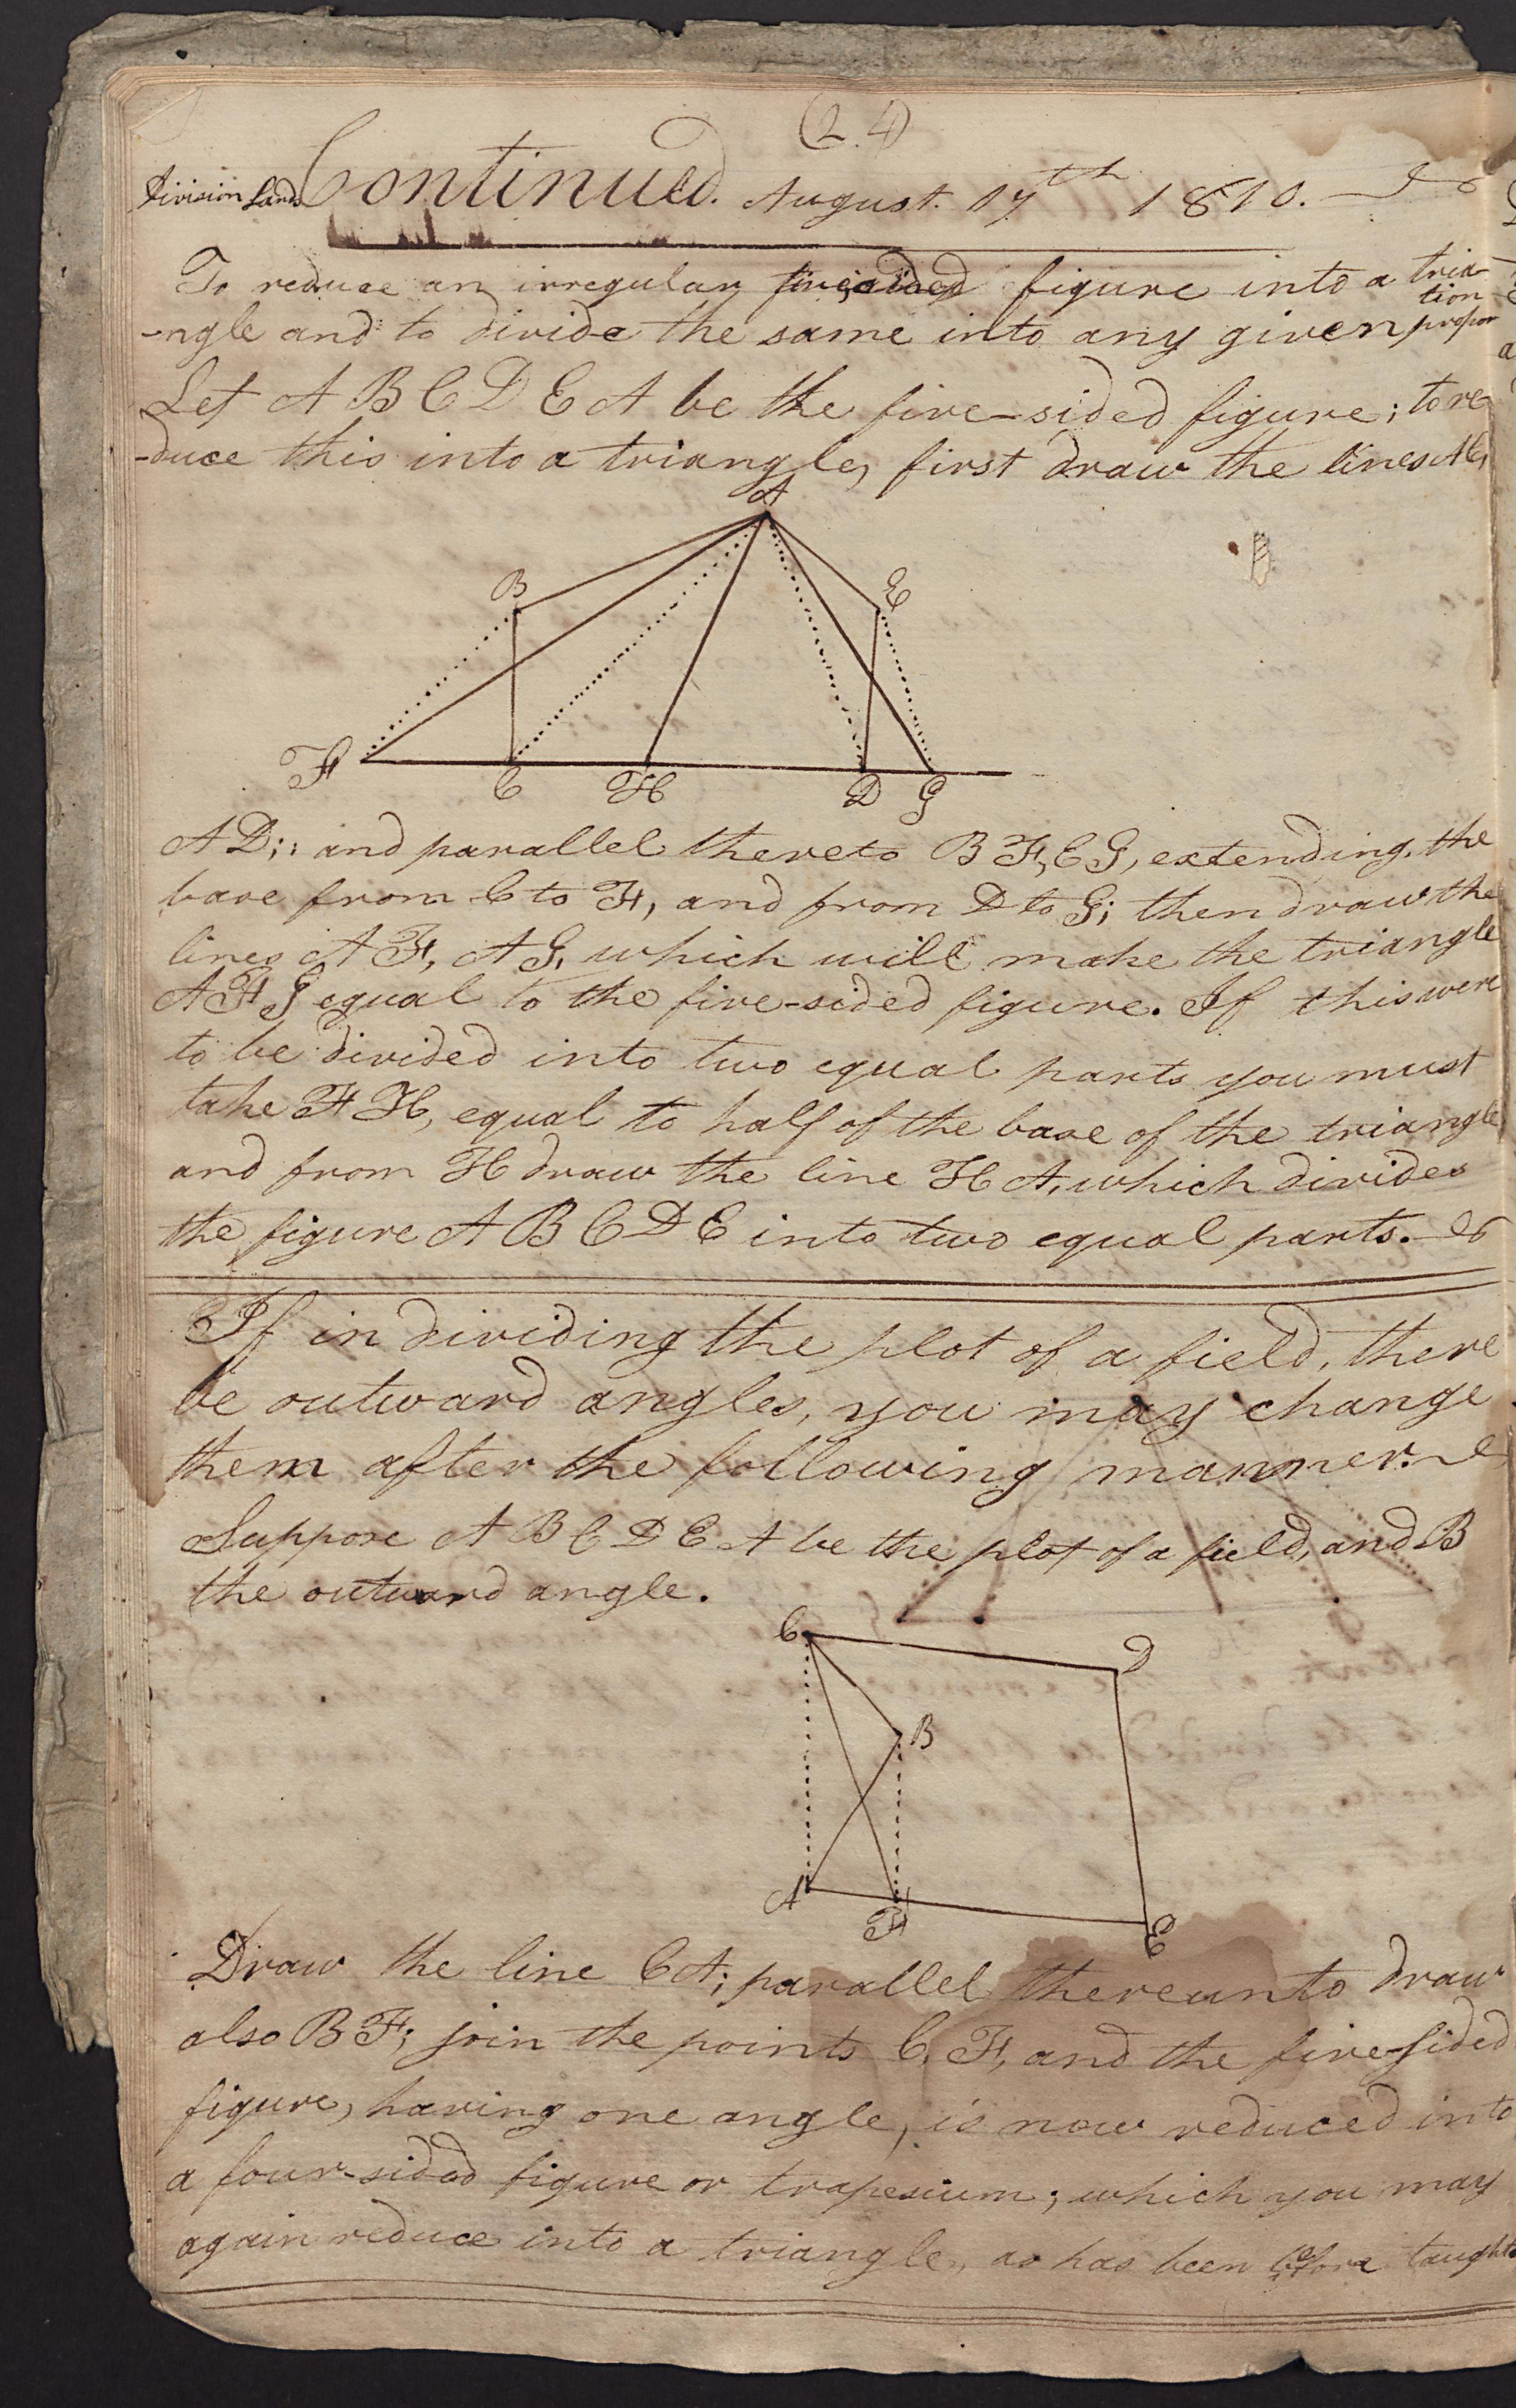 (24)
Division Land Continued. August. 17th 1810.
To reduce an irregular five sided figure into a tria-
-ngle and to divide the same into any given propor
tion
Let A B C D E A be the five-sided figure; to re
-duce this into a triangle, first draw the lines AC,
A
B
E
F
C
H
D
G
AD;: and parallel thereto BF, EG, extending, the
base from C to F, and from D to G; then draw the
lines AF, AG, which will make the triangle
AFG equal to the five-sided figure. If this were
to be divided into two equal parts you must
take FH, equal to half of the base of the triangle
and from H draw the line HA, which divides
the figure A B C D E into two equal parts.
If in dividing the plot of a field, there
be outward angles, you may change
them after the following manner.
Suppose A B C D E A be the plot of a field, and B
the outward angle.
C
D
B
A
F
E
Draw the line CA; parallel thereunto draw
also BF; join the points C, F, and the five-sided
figure, having one angle, is now reduced into
a four-sided figure or trapesium; which you may
again reduce into a triangle, as has been before taught.